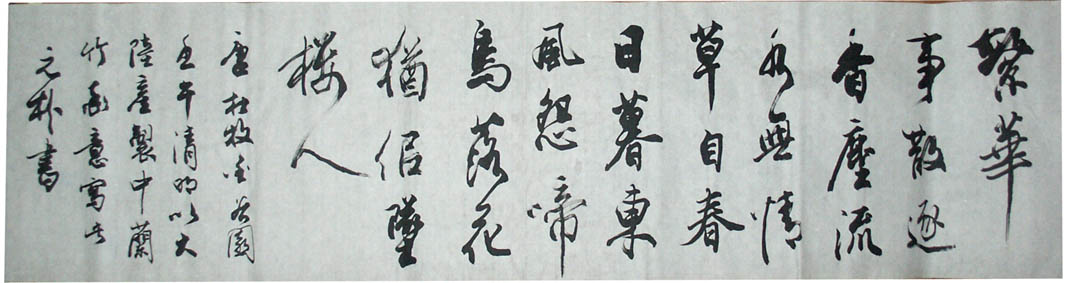 繁華
事散逐
香塵流
水無情
草自春
日暮東
風怨啼
鳥落花
猶佀墜
樓人
唐杜牧金谷園
壬午清明以大
陸產製中蘭
竹意寫此
元朴書